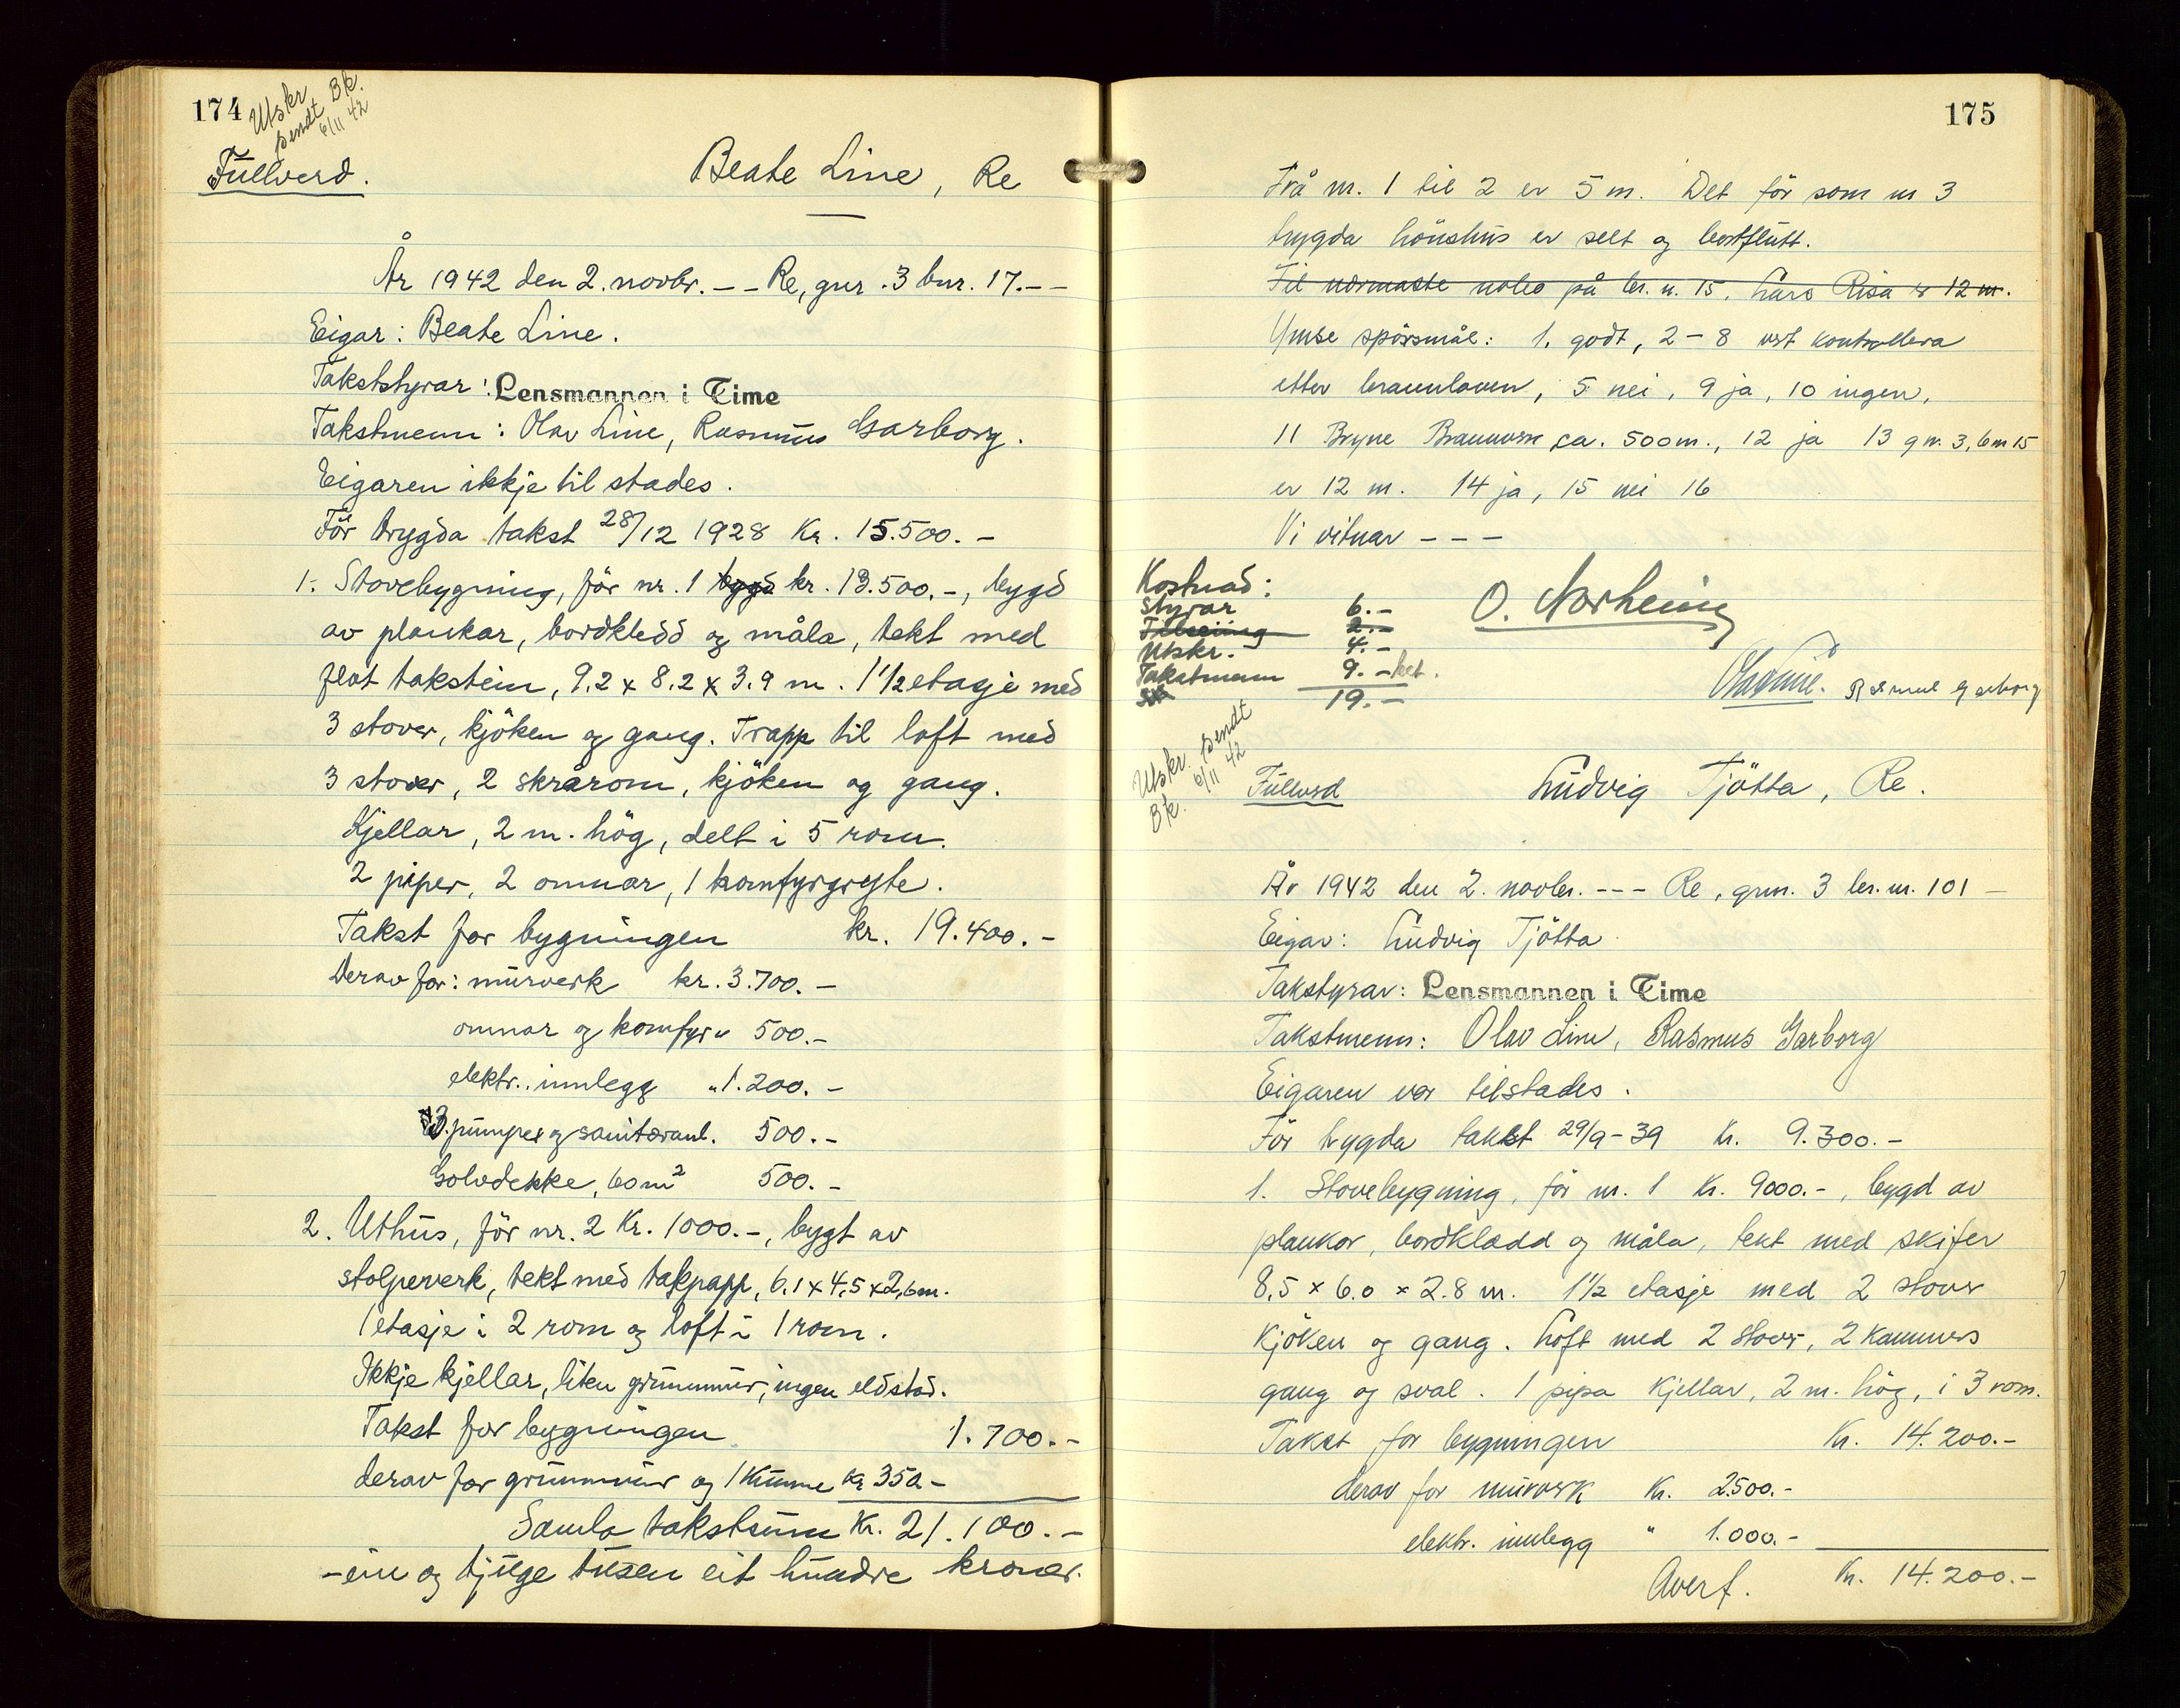 174
Utskr
sendt Bk.
6/11 42
Fullverd.
Beate Line, Re
År 1942 den 2. novbr. - - Re, gnr. 3 bnr. 17. - -
Eigar: Beate Line.
Takststyrar: Lensmannen i Time
Takstmenn: Olav Line, Rasmus Garborg.
Eigaren ikkje til stades.
För trygda takst 28/12 1928 Kr. 15.500.-
1. Stovebygning, för nr. 1 bygd kr. 13.500.-, bygd
av plankar, bordkledd og måla, tekt med
flat takstein, 9.2 x 8.2 x 3.9 m. 1 1/2 etasje med
3 stover, kjöken og gang. Trapp til loft med
3 stover, 2 skrårom, kjöken og gang.
Kjellar, 2 m. hög, delt i 5 rom.
2 piper, 2 omnar, 1 komfyrgryte.
Takst for bygningen kr. 19.400.-
Derav for: murverk kr. 3.700.-
omnar og komfyr " 500.-
elektr. innlegg " 1.200.-
pumper og sanitæranl. 500.-
Golvdekke, 60 m2 500.-
2. Uthus, för nr. 2 Kr. 1000.-, bygt av
stolpeverk, tekt med takpapp, 6.1 x 4.5 x 2,6 m.
1 etasje i 2 rom og loft i 1 rom.
Ikkje kjellar, liten grunnmur, ingen eldstad.
Takst for bygningen 1.700.-
derav for grunnmur og 1 kumme kr 350.-
Samla takstsum Kr. 21.100.-
- ein og tjuge tusen eit hundre kroner.
175
Frå nr. 1 til 2 er 5 m. Det för som nr 3
trygda hönshus er selt og bortflutt.
Til nærmaste nabo på br. n. 15, Lars Risa er 12 m.
Ymse spörsmål: 1. godt, 2 - 8 vert kontrollera
etter brannloven, 5 nei, 9 ja, 10 ingen,
11 Bryne Brannvern ca. 500 m., 12 ja 13 g nr. 3, b nr 15
er 12 m. 14 ja, 15 nei 16
Vi vitnar - - -
Kostnad:
Styrar 6.-
2.-
Utskr. 4.-
Takstmenn 9.-
19.-
O. Norheim
Olav Line. Rasmus Garborg
Utskr. sendt
Bk. 6/11 42
Fullverd
Ludvig Tjötta, Re.
År 1942 den 2. novbr. - - - Re, gnr. 3 br. nr. 101 -
Eigar: Ludvig Tjötta
Takstyrar: Lensmannen i Time
Takstmenn: Olav Line, Rasmus Garborg
Eigaren var tilstades.
För trygda takst 29/9-39 Kr. 9.300.-
1. Stovebygning, för nr. 1 Kr. 9000.-, bygd av
plankor, bordkladd og måla, tekt med skifer
8,5 x 6.0 x 2.8 m. 1 1/2 etasje med 2 stover
kjöken og gang. Loft med 2 stover, 2 kammers
gang og sval. 1 pipa Kjellar, 2 m. hög, i 3 rom.
Takst for bygningen Kr. 14.200.-
derav for murverk Kr. 2500.-
elektr. innlegg " 1.000.-
Overf. Kr. 14.200.-